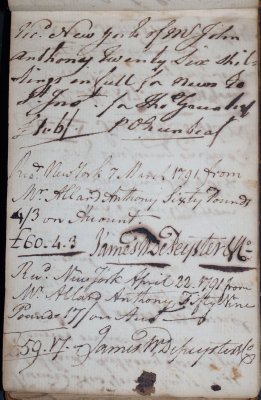 New York of Mr John
Anthony Twenty Six Shil-
lings in full for
for The
£1.6/
Recd. New York 7. March 1791, from
Mr. Allard Anthony Sixty Pounds
4/3 on Account
£60.4.3 James W Depeyster & Co
Recd. New York April 22. 1791 from
Mr. Allard Anthony Fifty Nine
Pounds 17/ on
£59.17.- James W. Depeyster & Co